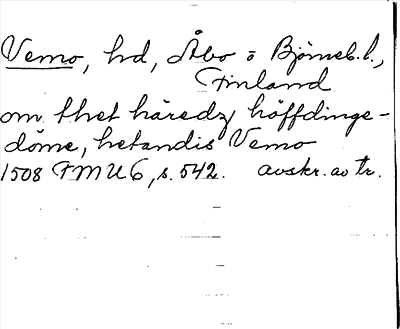 Vemo, hd, Åbo o Björneb. l.,
Finland
om thet häredz höffdinge-
döme, hetandis Vemo
1508 FMU 6, s. 542. avskr. av tr.